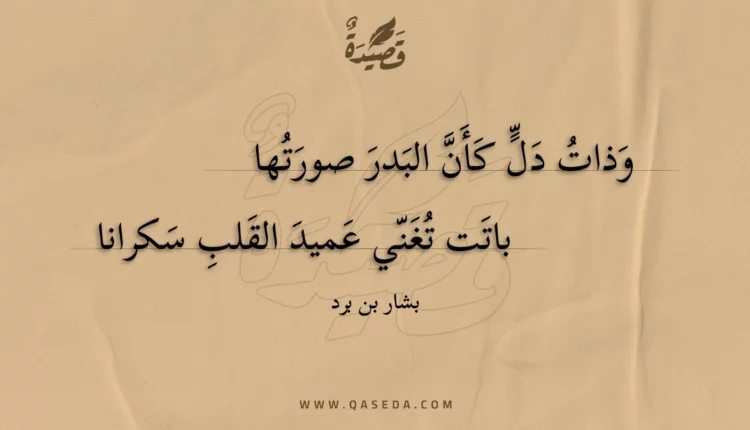 قَصِيدَةٌ
وَذاتُ دَلٍّ كَأَنَّ البَدرَ صورَتُها
باتَت تُغَنّي عَميدَ القَلبِ سَكرانا
بشار بن برد
WWW.QASEDA.COM